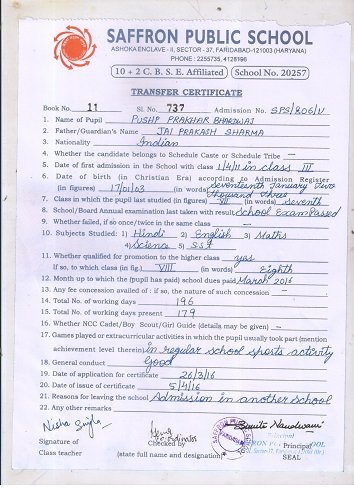 SAFFRON PUBLIC SCHOOL
ASHOKA ENCLAVE - II, SECTOR - 37, FARIDABAD-121003 (HARYANA)
PHONE : 2255735, 4128196
10 + 2 C. B. S. E. Affiliated School No. 20257
TRANSFER CERTIFICATE
Book No. 11 Sl. No. 737 Admission No. SPS/806/V
1. Name of Pupil PUSHP PRAKHAR BHARDWAJ
2. Father/Guardian's Name JAI PRAKASH SHARMA
3. Nationality Indian
4. Whether the candidate belongs to Schedule Caste or Schedule Tribe -
5. Date of first admission in the School with class 1/4/11 in class III
6. Date of birth (in Christian Era) according to Admission Register
(in figures) 17/01/03 (in words) Seventeenth January Two Thousand Three
7. Class in which the pupil last studied (in figures) VII (in words) Seventh
8. School/Board Annual examination last taken with result School Exam Passed
9. Whether failed, if so once/twice in the same class -
10. Subjects Studied: 1) Hindi 2) English 3) Maths
4) Science 5) SST
11. Whether qualified for promotion to the higher class yes
If so, to which class (in fig.) VIII (in words) Eighth
12. Month up to which the (pupil has paid) school dues paid March 2016
13. Any fee concession availed of : if so, the nature of such concession -
14. Total No. of working days 196
15. Total No. of working days present 179
16. Whether NCC Cadet/Boy Scout/Girl Guide (details may be given) -
17. Games played or extracurricular activities in which the pupil usually took part (mention
achievement level therein) in regular school sports activity
18. General conduct Good
19. Date of application for certificate 26/3/16
20. Date of issue of certificate 5/4/16
21. Reasons for leaving the school Admission in another school
22. Any other remarks
Nisha Singla
Signature of Checked by Principal
Class teacher (state full name and designation) SEAL